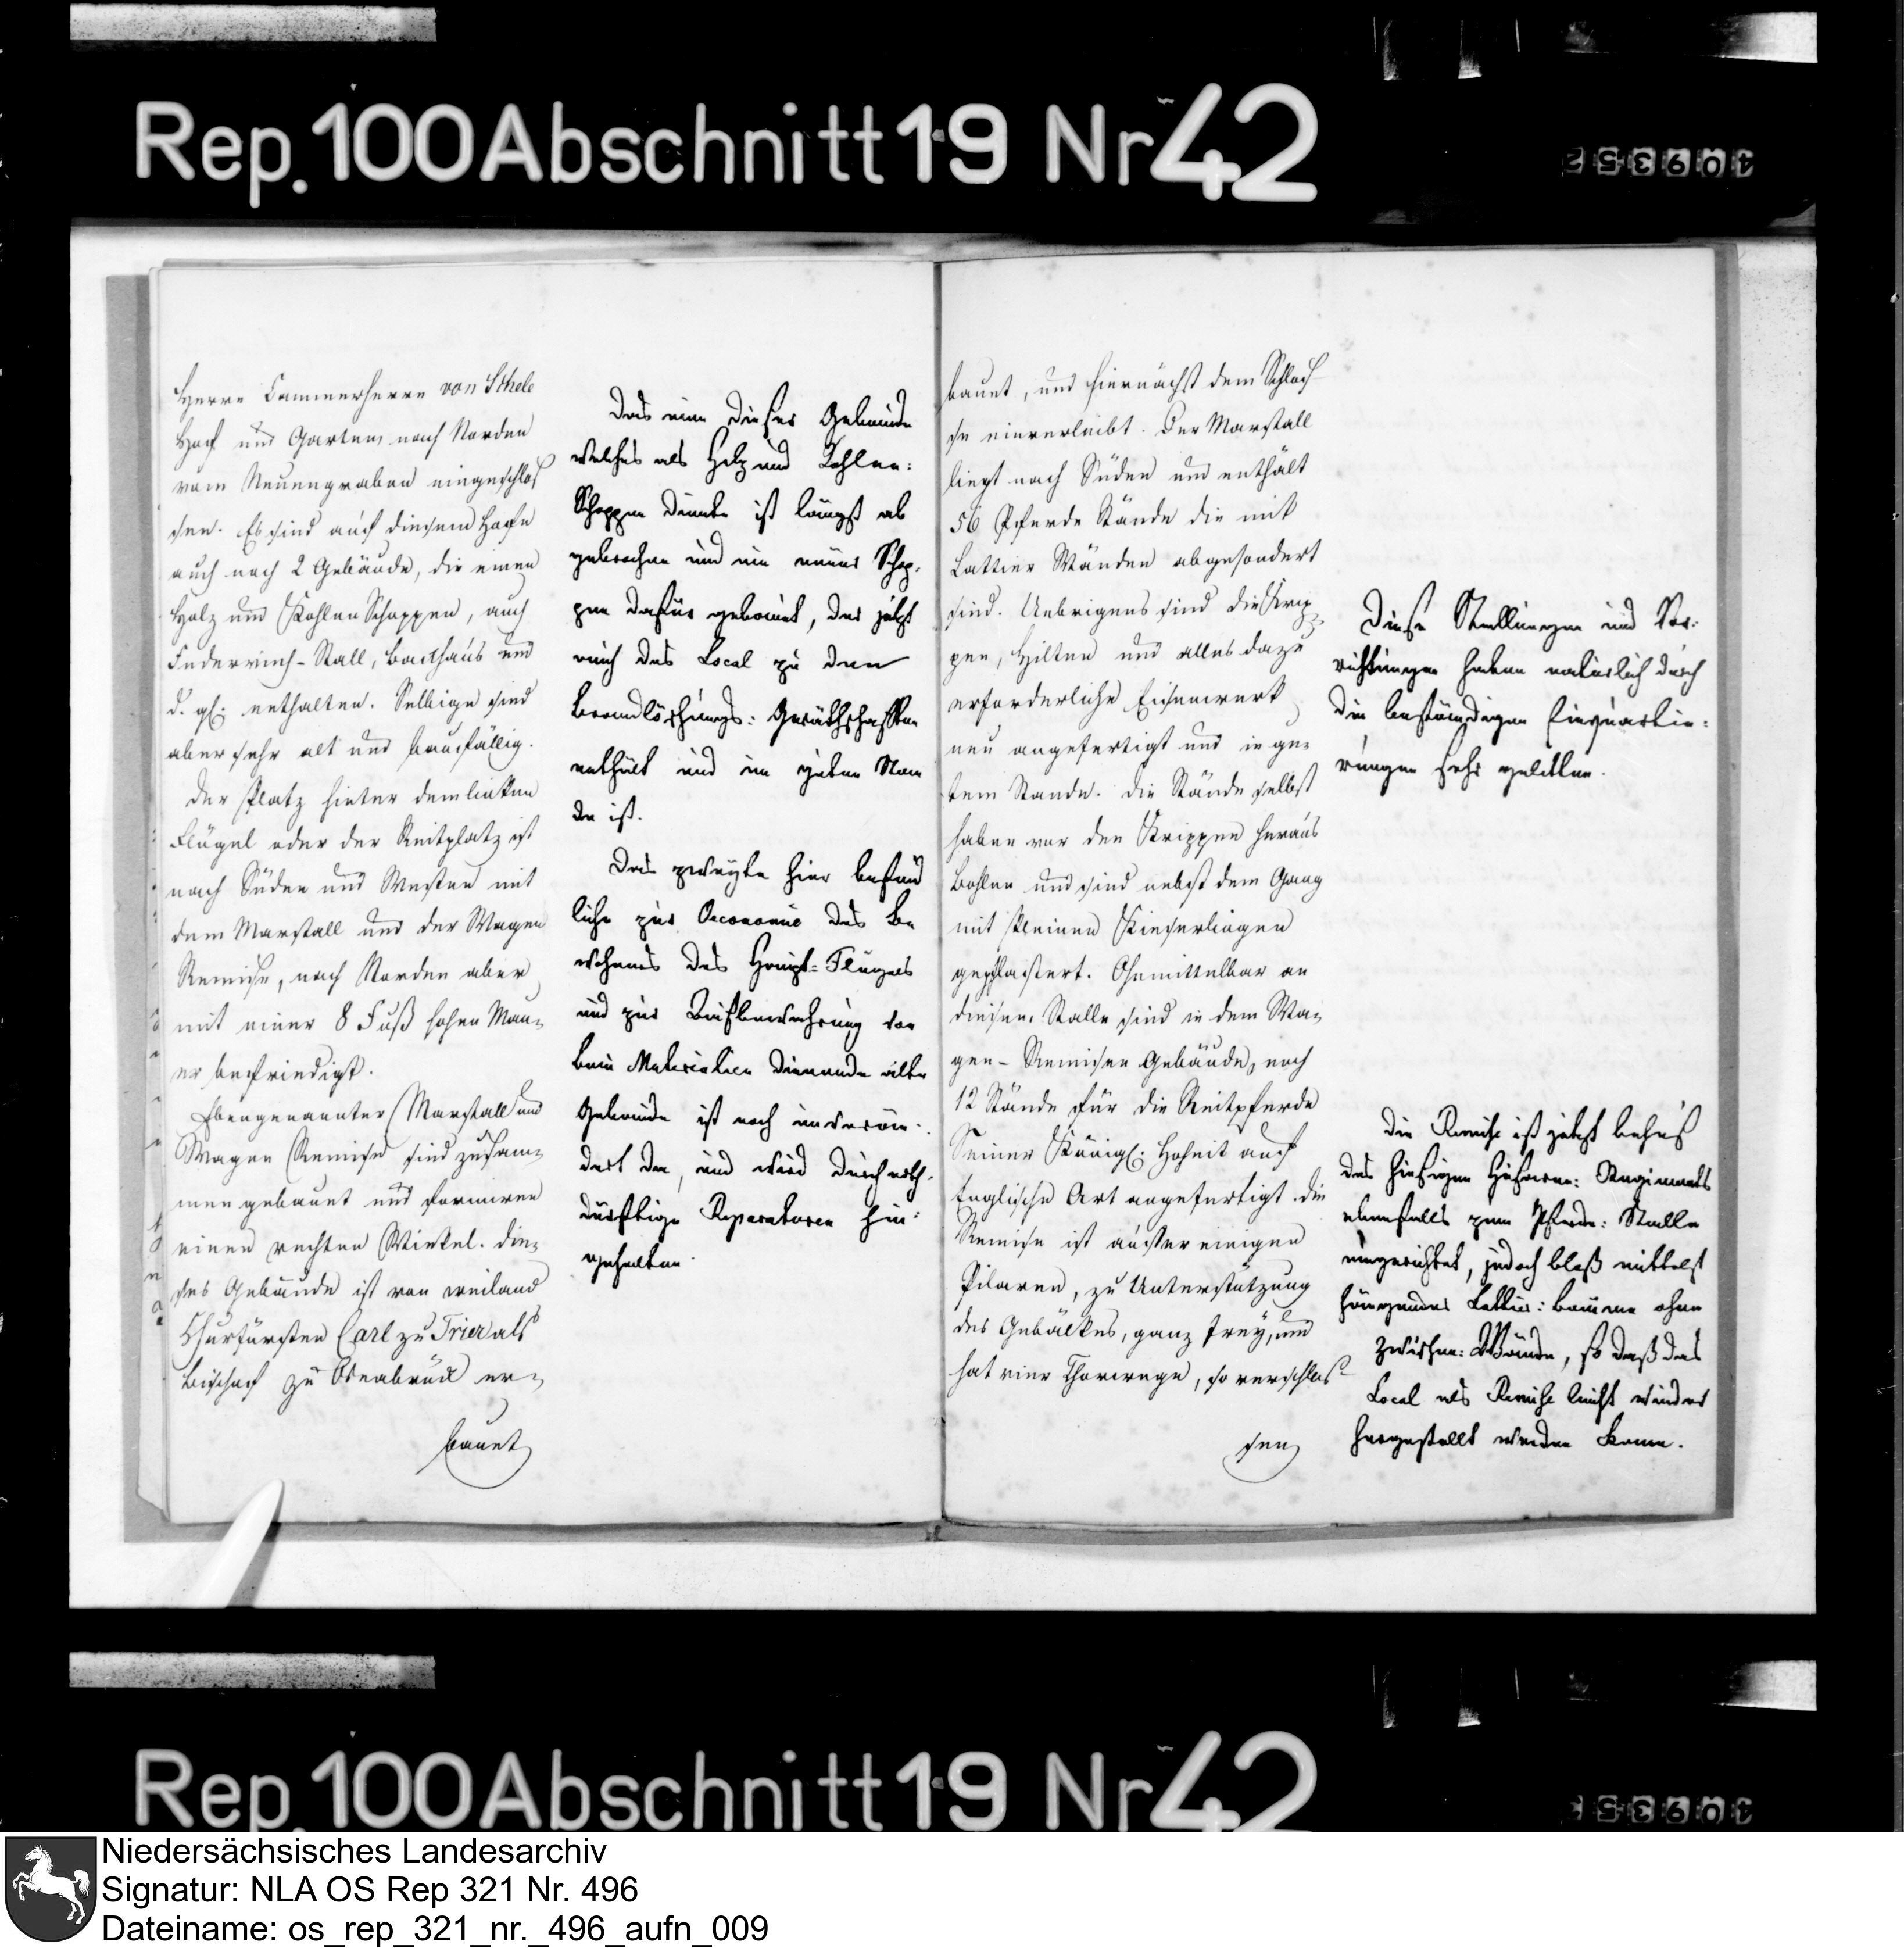 Rep. 100 Abschnitt 19 Nr 42
409352
Herrn Cammerherrn von Schele
Hoff und Garten, nach Norden
vom Neuengraben eingeschlos
sen. Es sind auf diesem Hofe
auch noch 2 Gebäude, die einen
Holz und Kohlen Schoppen, auch
Federvieh-Stall, Backhaus und
d. gl: enthalten. Selbige sind
aber sehr alt und baufällig.
Der Platz hinter dem linken
Flügel oder der Reitplatz ist
nach Süden und Westen mit
dem Marstall und der Wagen
Remise, nach Norden aber
mit einer 8 Fuß hohen Mau-
er befriedigt.
Ebengenannter Marstall und
Wagen Remise sind zusam-
men gebauet und formiren
einen rechten Winkel. Die-
ses Gebäude ist von weiland
Churfürsten Carl zu Trier als
Bischof zu Osnabrück er-
bauet
Das eine dieser Gebäude
welches als Holz und Kohlen:
Schoppen diente ist längst ab
gebrochen und ein neuer Schop-
pen dafür gebauet, der jetzt
auch das Local zu den
Brandlöschungs: Geräthschaften
enthält und im guten Stan
de ist.
Das zweyte hier befind
liche zur Oeconomie des Be
wohners des Haupt-Flügels
und zur Aufbewahrung von
Bau Materialien dienende alte
Gebäude ist noch unverän-
dert da, und wird durch noth-
dürftige Reparaturen hin:
gehalten.
bauet, und hiernächst dem Schlos
se einverleibt. Der Marstall
liegt nach Süden und enthält
56 Pferde Stände die mit
Lattier Wänden abgesondert
sind. Uebrigens sind die Krip-
pen, Hilten und alles dazu
erforderliche Eisenwerk
neu angefertigt und in gu-
tem Stande. Die Stände selbst
haben vor den Krippen heraus
Bohlen und sind nebst dem Gang
mit kleinen Kieserlingen
gepflastert. Ohnmittelbar an
diesem Stalle sind in dem Wa-
gen-Remisen Gebäude, noch
12 Stände für die Reitpferde
Seiner Königl: Hoheit auf
Englische Art angefertigt. Die
Remise ist ausser einigen
Pilaren, zu Unterstützung
des Gebälkes, ganz frey, und
hat vier Thorwege, so verschlos
sen
Diese Stallungen und Vor-
richtungen haben natürlich durch
die beständigen Einquartie-
rungen sehr gelitten.
Die Remise ist jetzt behuf
des hiesigen Husaren: Regiments
ebenfalls zum Pferde: Stalle
eingerichtet, jedoch bloß mittelst
hängender Lattier: Bäume ohne
Zwischen: Wände, so daß das
Local als Remise leicht wieder
hergestellt werden kann.
Rep. 100 Abschnitt 19 Nr 42
409352
Niedersächsisches Landesarchiv
Signatur: NLA OS Rep 321 Nr. 496
Dateiname: os_rep_321_nr._496_aufn_009